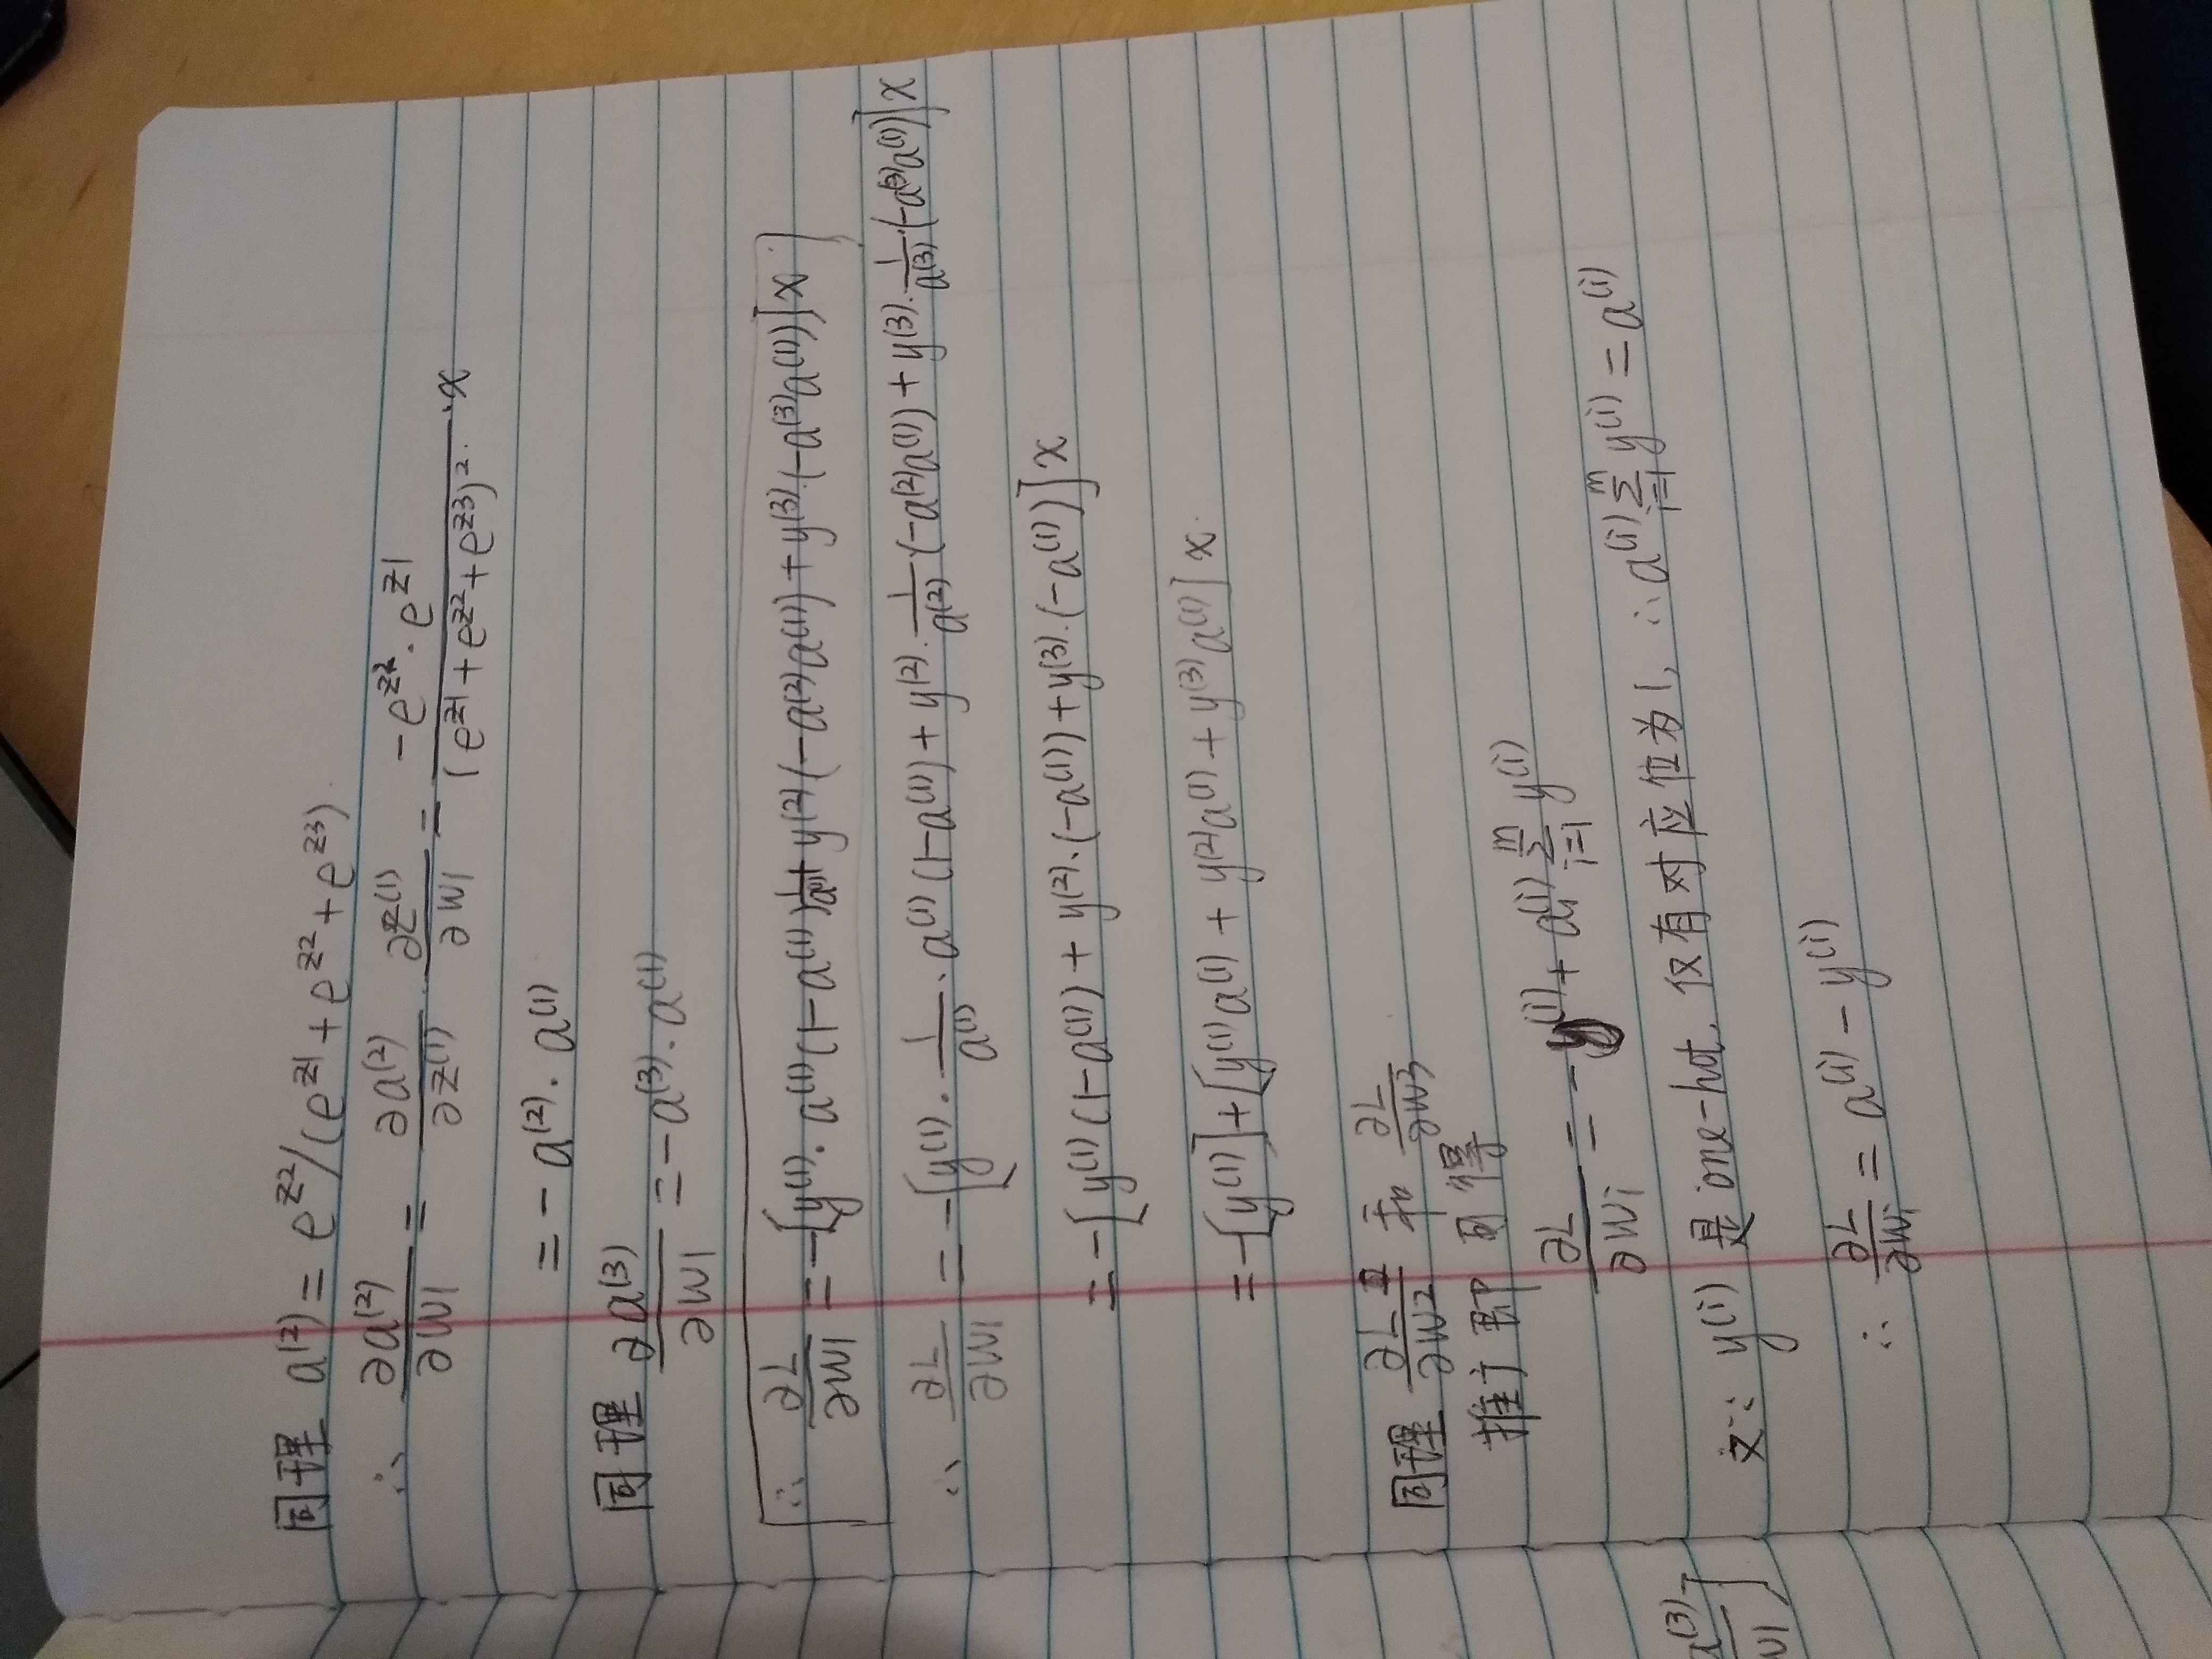 同理 a⁽²⁾ = e^{z2}/(e^{z1} + e^{z2} + e^{z3}).
∴ ∂a⁽²⁾/∂W1 = ∂a⁽²⁾/∂z⁽¹⁾ · ∂z⁽¹⁾/∂W1 = -e^{z2}·e^{z1}/(e^{z1} + e^{z2} + e^{z3})² · x
= -a⁽²⁾· a⁽¹⁾
同理 ∂a⁽³⁾/∂W1 = -a⁽³⁾· a⁽¹⁾
∴ ∂L/∂W1 = -[y⁽¹⁾· a⁽¹⁾(1-a⁽¹⁾) 1/a⁽¹⁾ + y⁽²⁾(-a⁽²⁾a⁽¹⁾) + y⁽³⁾·(-a⁽³⁾a⁽¹⁾)]x
∴ ∂L/∂W1 = -[y⁽¹⁾· 1/a⁽¹⁾ · a⁽¹⁾(1-a⁽¹⁾) + y⁽²⁾· 1/a⁽²⁾·(-a⁽²⁾a⁽¹⁾) + y⁽³⁾· 1/a⁽³⁾·(-a⁽³⁾a⁽¹⁾)]x
= -[y⁽¹⁾(1-a⁽¹⁾) + y⁽²⁾·(-a⁽¹⁾) + y⁽³⁾·(-a⁽¹⁾)]x
= -[y⁽¹⁾]+[y⁽¹⁾a⁽¹⁾ + y⁽²⁾a⁽¹⁾ + y⁽³⁾a⁽¹⁾]x.
同理 ∂L/∂W2 和 ∂L/∂W3
推广即可得
∂L/∂Wi = -y⁽ⁱ⁾ + a⁽ⁱ⁾ Σ_{i=1}^{m} y⁽ⁱ⁾
又∵ y⁽ⁱ⁾ 是one-hot, 仅有对应位为1, ∴ a⁽ⁱ⁾ Σ_{i=1}^{m} y⁽ⁱ⁾ = a⁽ⁱ⁾
∴ ∂L/∂Wi = a⁽ⁱ⁾ - y⁽ⁱ⁾